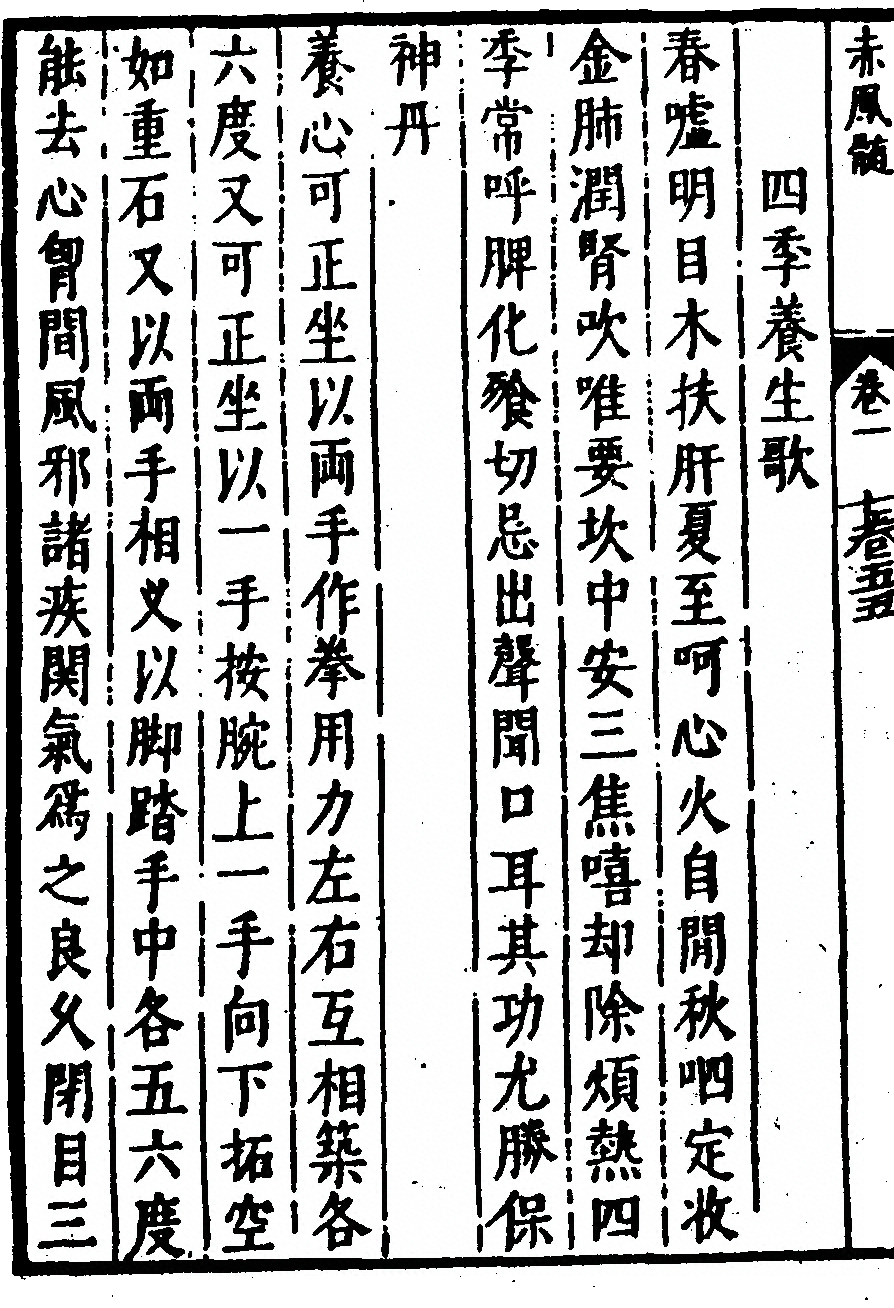 赤鳳髓
卷一
四季養生歌
春噓明目木扶肝夏至呵心火自閒秋呬定收
金肺潤腎吹唯要坎中安三焦嘻却除煩熱四
季常呼脾化飱切忌出聲聞口耳其功尤勝保
神丹
養心可正坐以両手作拳用力左右互相築各
六度又可正坐以一手按腕上一手向下拓空
如重石又以両手相叉以脚踏手中各五六度
能去心胷間風邪諸疾関氣爲之良乆閉目三